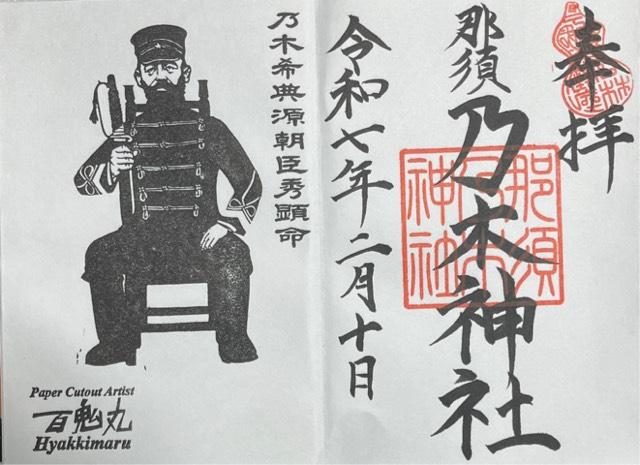 奉拝
那須乃木神社
那須乃木神社
令和七年二月十日
乃木希典源朝臣秀顕命
Paper Cutout Artist
百鬼丸
Hyakkimaru